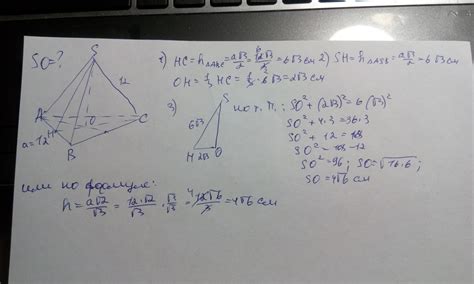 SO=?
S
12
A
a=12
H
O
B
C
1) HC=h△ABC=a√3/2=12√3/2=6√3 см
OH=1/3 HC=1/3·6√3=2√3 см
2) SH=h△ASB=a√3/2=6√3 см
3)
S
6√3
H 2√3 O
по т. П.: SO²+(2√3)²=6(√3)²
SO²+4·3=36·3
SO²+12=108
SO²=108-12
SO²=96; SO=√16·6;
SO=4√6 см
или по формуле:
h=a√2/√3=12·√2/√3·√3/√3=12√6/3=4√6 см